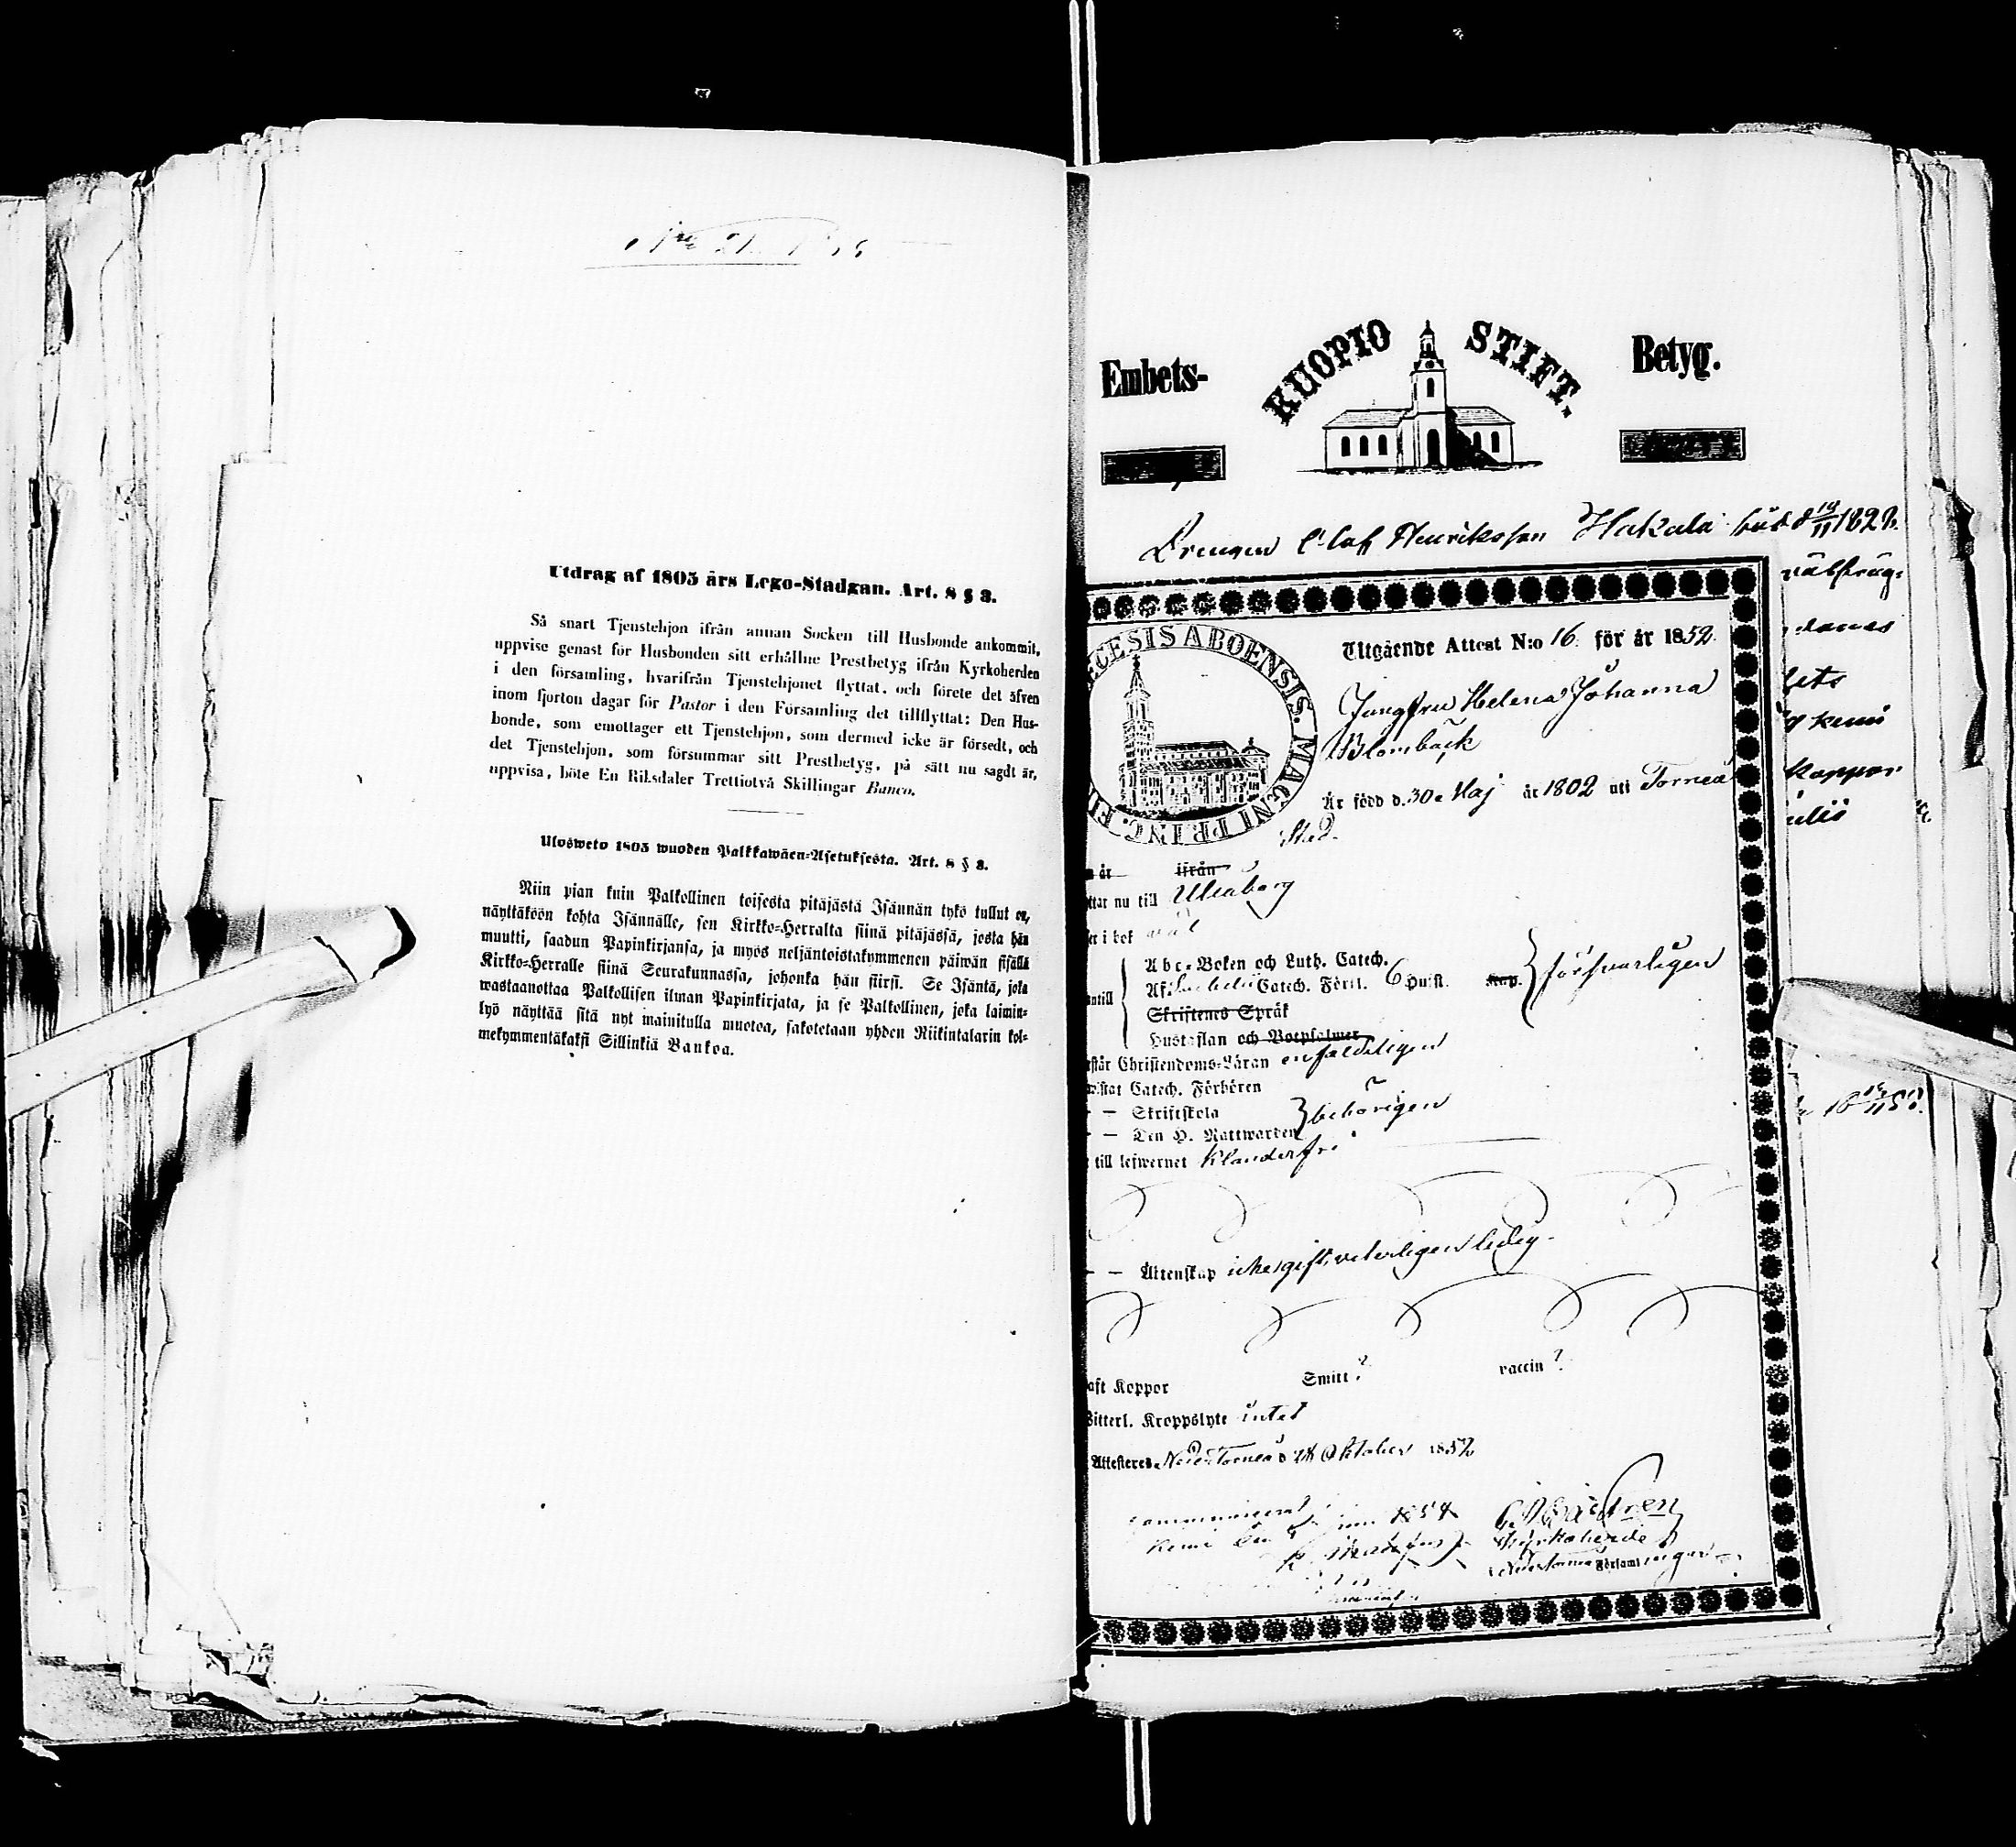 Utdrag af 1805 års Lego-Stadgan. Art. 8 § 3.
Så snart Tjenstehjon ifrån annan Socken till Husbonde ankommit,
uppvise genast för Husbonden sitt erhållne Prestbetyg ifrån Kyrkoherden
i den församling, hvarifrån Tjenstehjonet flyttat, och förete det äfven
inom fjorton dagar för Pastor i den Församling det tillflyttat: Den Hus-
bonde, som emottager ett Tjenstehjon, som dermed icke är försedt, och
det Tjenstehjon, som försummar sitt Prestbetyg, på sätt nu sagdt är,
uppvisa, böte En Riksdaler Trettiotvå Skillingar Banco.
Ulosweto 1805 wuoden Palkkawäen-Asetuksesta. Art. 8 § 3.
Niin pian kuin Palkollinen toisesta pitäjästä Isännän tykö tullut on,
näyttäköön kohta Isännälle, sen Kirkko-Herralta siinä pitäjässä, josta hän
muutti, saadun Papinkirjansa, ja myös neljäntoistakymmenen päiwän sisällä
Kirkko-Herralle siinä Seurakunnassa, johonka hän siirsi. Se Isäntä, joka
wastaanottaa Palkollisen ilman Papinkirjata, ja se Palkollinen, joka laimin-
lyö näyttää sitä nyt mainitulla muotoa, sakotetaan yhden Riikintalarin kol-
mekymmentäkaksi Sillinkiä Bankoa.
Embets- KUOPIO STIFT. Betyg.
Drengen Olaf Henriksson Hakala född d 19/11 1828.
Utgående Attest N:o 16. för år 1852.
Jungfru Helena Johanna
Blombäck
Är född d. 30e Maj år 1802 uti Torneå
Stad.
år ifrån
nu till Uleåborg
i bok väl
Abc-Boken och Luth. Catech.
Catech. Förkl. Hust. försvarligen
Skriftenes Språk
Hustaflan och Botpsalmer
Christendoms-Läran enfaldeligen
Catech. Förhören
— Skriftskola behörigen
— Den H. Nattwarden
till lefwernet Klanderfri
— Äktenskap icke gift, veterligen ledig.
Koppor Smitt? vaccin?
Kroppslyte intet
Attesteres Neder Torneå d 28 Oktober 1852
Kyrkoherde
Neder Torneå Församl